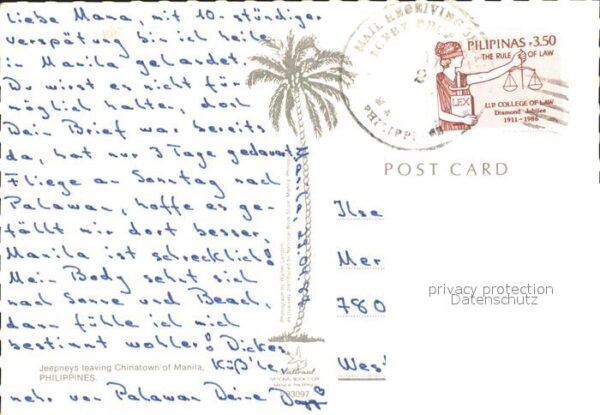 Liebe Mama, mit 10-stündiger
verspätung bin ich heile
in Manila gelandet.
Du wirst es nicht für
möglich halten, doch
Dein Brief war bereits
da, hat nur 3 Tage gedauert
Fliege am Sonntag nach
Palawan, hoffe es ge-
fällt mir dort besser,
Manila ist schrecklich!
Mein Body sehnt sich
nach Sonne und Beach,
dann fühle ich mich
bestimmt wohler! Dickes
Küß'le
mehr von Palawan Deine
Manila,
Jeepneys leaving Chinatown of Manila,
PHILIPPINES.
National
NATIONAL BOOK STORE
MAIL RECEIVING
PHILIPPINES
PILIPINAS ₱3.50
THE RULE OF LAW
LEX
U.P. COLLEGE OF LAW
Diamond Jubilee
1911-1986
POST CARD
Ilse
Mer
780
Wes
privacy protection
Datenschutz